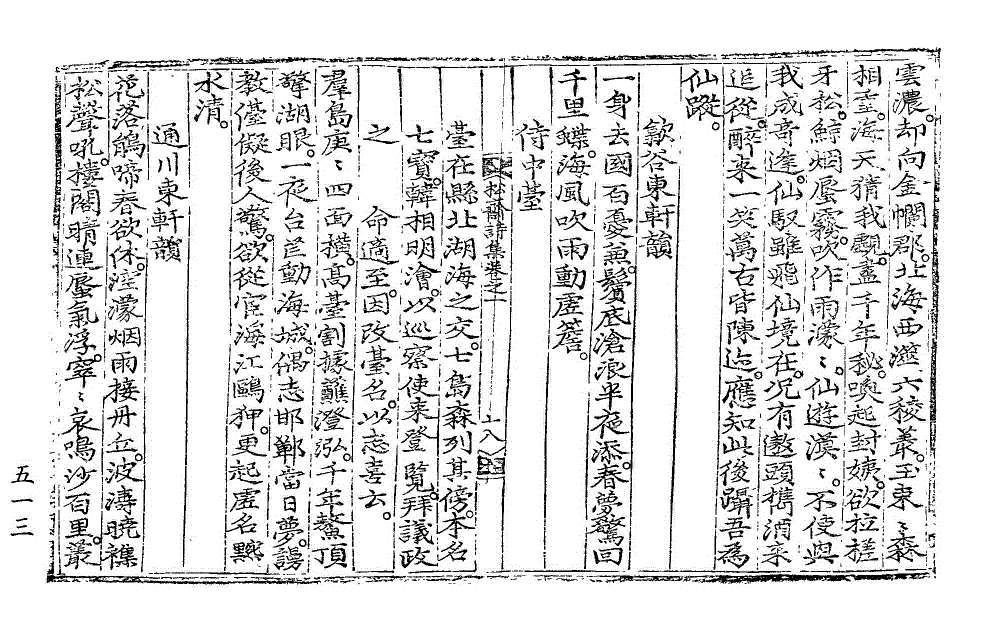 雲濃。却向金幱郡。北海西澨六稜叢。玉束〻森
相重。海天猜我觀。盡千年秘。喚起封姨。欲拉搓
牙松。鯨烟蜃霧。吹作雨濛〻。仙遊漠〻。不使與
我成奇逢。仙馭雖飛仙境在。況有遨頭携酒來
追從。醉來一笑萬古皆陳迹。應知此後躡吾爲
仙蹤。
歙谷東軒韻
一身去國百憂兼。鬢底滄浪半夜添。春夢驚回
千里蝶。海風吹雨動虛簷。
侍中臺
松齋詩集卷之一
十八
臺在縣北湖海之交。七島森列其傍。本名
七寶。韓相明澮。以巡察使來登覽。拜議政
之 命適至。因改臺名。以志喜云。
羣島庚〻四面橫。高臺割據蘸澄泓。千年鰲頂
擎湖眼。一夜台芒動海城。偶志邯鄲當日夢。謾
敎儓儗後人驚。欲從宦海江鷗狎。更起虛名黦
水清。
通川東軒韻
花落鵑啼春欲休。窪濛烟雨接丹丘。波濤曉襍
松聲吼。樓閣晴連蜃氣浮。窣〻哀鳴沙百里。叢
五一三